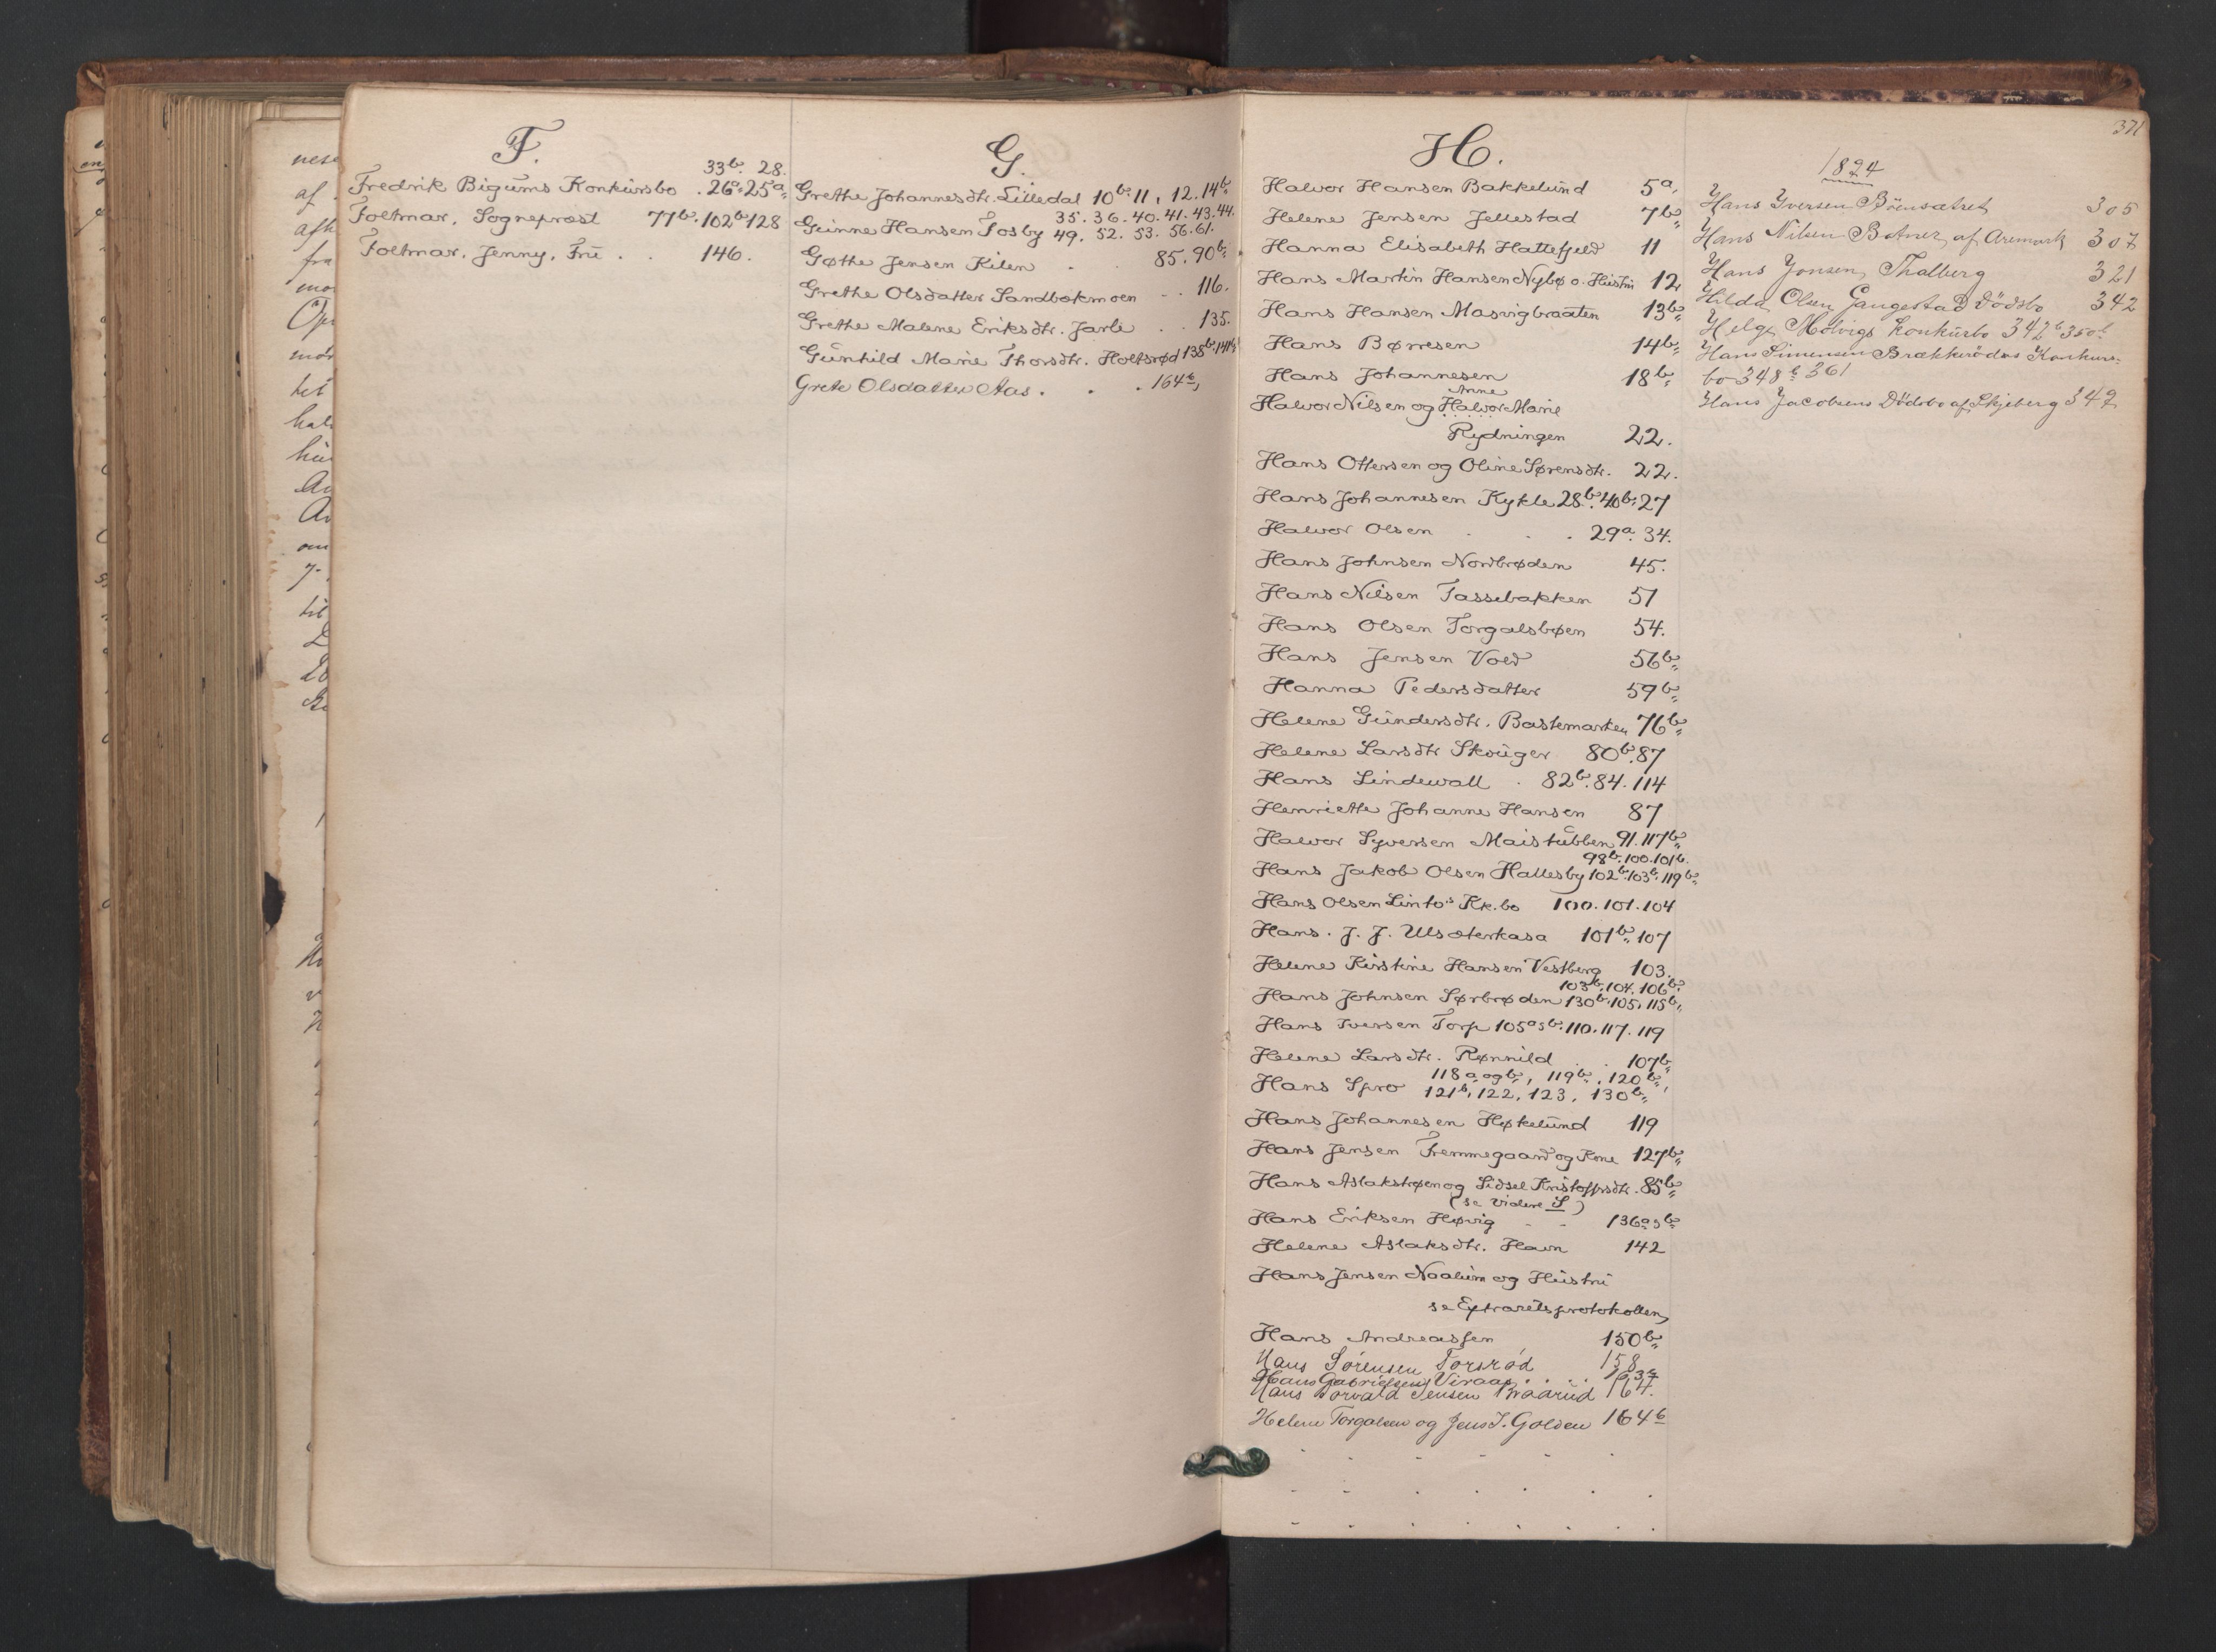 F.
33b. 28.
Fredrik Bigums Konkursbo . 26a. 25a.
Foltmar, Sogneprest 77b. 102b 128
Foltmar, Jenny, Fru . . 146.
G.
Grethe Johannesdtr. Lilledal 10b. 11, 12. 14b.
35. 36. 40. 41. 43. 44.
Gunne Hansen Fosby 49. 52. 53. 56. 61.
Gøthe Jensen Kilen . 85. 90b.
Grethe Olsdatter Sandbækmoen . . 116.
Grethe Malene Eriksdtr. Jarli . . 135.
Gunhild Marie Thorsdtr. Holtsrød 138b. 141b
Grete Olsdatter Aas . . . 164b,
H.
Halvor Hansen Bakkelund 5a,
Helene Jensen Jellestad 7b.
Hanna Elisabeth Hattefjeld 11
Hans Martin Hansen Nybø o. Hustru 12.
Hans Hansen Masvigbraaten 13b.
Hans Børresen 14b.
Hans Johannesen 18b.
Anne
Halvor Nilsen og Halvor Marie
Rydningen 22.
Hans Ottersen og Oline Sørensdtr. 22.
Hans Johannesen Kykle 28b. 40b. 27
Halvor Olsen . . . 29a. 34.
Hans Johnsen Nordbrøden 45.
Hans Nilsen Tassebakken 51
Hans Olsen Torgalsbøen 54.
Hans Jensen Vold 56b.
Hanna Pedersdatter 59b.
Helene Gundersdtr. Bastemarken 76b.
Helene Larsdtr Skouger 80b. 87
Hans Lindewall . 82b. 84. 114
Henriette Johanne Hansen 87
Halvor Syversen Maistubben 91. 117b.
98b. 100. 101b.
Hans Jakob Olsen Hallesby 102b. 103b. 119b.
Hans Olsen Linto's Kk.bo 100. 101. 104
Hans. J. J. Ulsæterkasa 101b. 107
Helene Kirstine Hansen Vestberg 103.
103b. 104. 106b.
Hans Johnsen Sørbrøden 130b. 105. 115b.
Hans Iversen Torp 105a&b. 110. 117. 119
Helene Larsdtr. Rønnild . . 107b.
118a og b., 119b., 120b.,
Hans Spro 121b, 122, 123, 130b.
Hans Johannesen Høkelund 119
Hans Jensen Fremmegaard og Kone 127b.
Hans Aslakstrøen og Sidsel Kristoffersdtr. 85b.
(se videre S)
Hans Eriksen Høvig - - 136a&b.
Helene Aslaksdtr. Haven 142
Hans Jensen Naalum og Hustru
se Extraretsprotokollen,
Hans Andreassen 150b.
Hans Sørensen Torsrød 158
Hans Gabrielsen Viraas . . . . 163a
Hans Torvald Jensen Braarud 164.
Helene Torgalsen og Jens J. Golden 164b
371
1894
Hans Iversen Böensætret 305
Hans Nilsen Botner af Aremark 307
Hans Jonsen Thalberg 321
Hilda Olsen Gangestad Dödsbo 342
Helge Holvigs Konkursbo 342b 350b
Hans Simensen Brækkerödes Konkurs-
bo 348b 361
Hans Jacobsens Dödsbo af Skjeberg 349